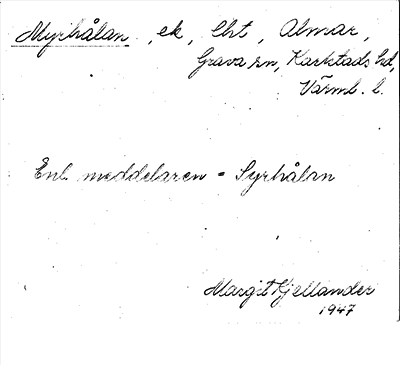 Myrhålan, ek, Cht, Almar,
Grava sn, Karlstads hd,
Värml. l.
Enl. meddelaren = Syrhålan
Margit Kjellander
1947